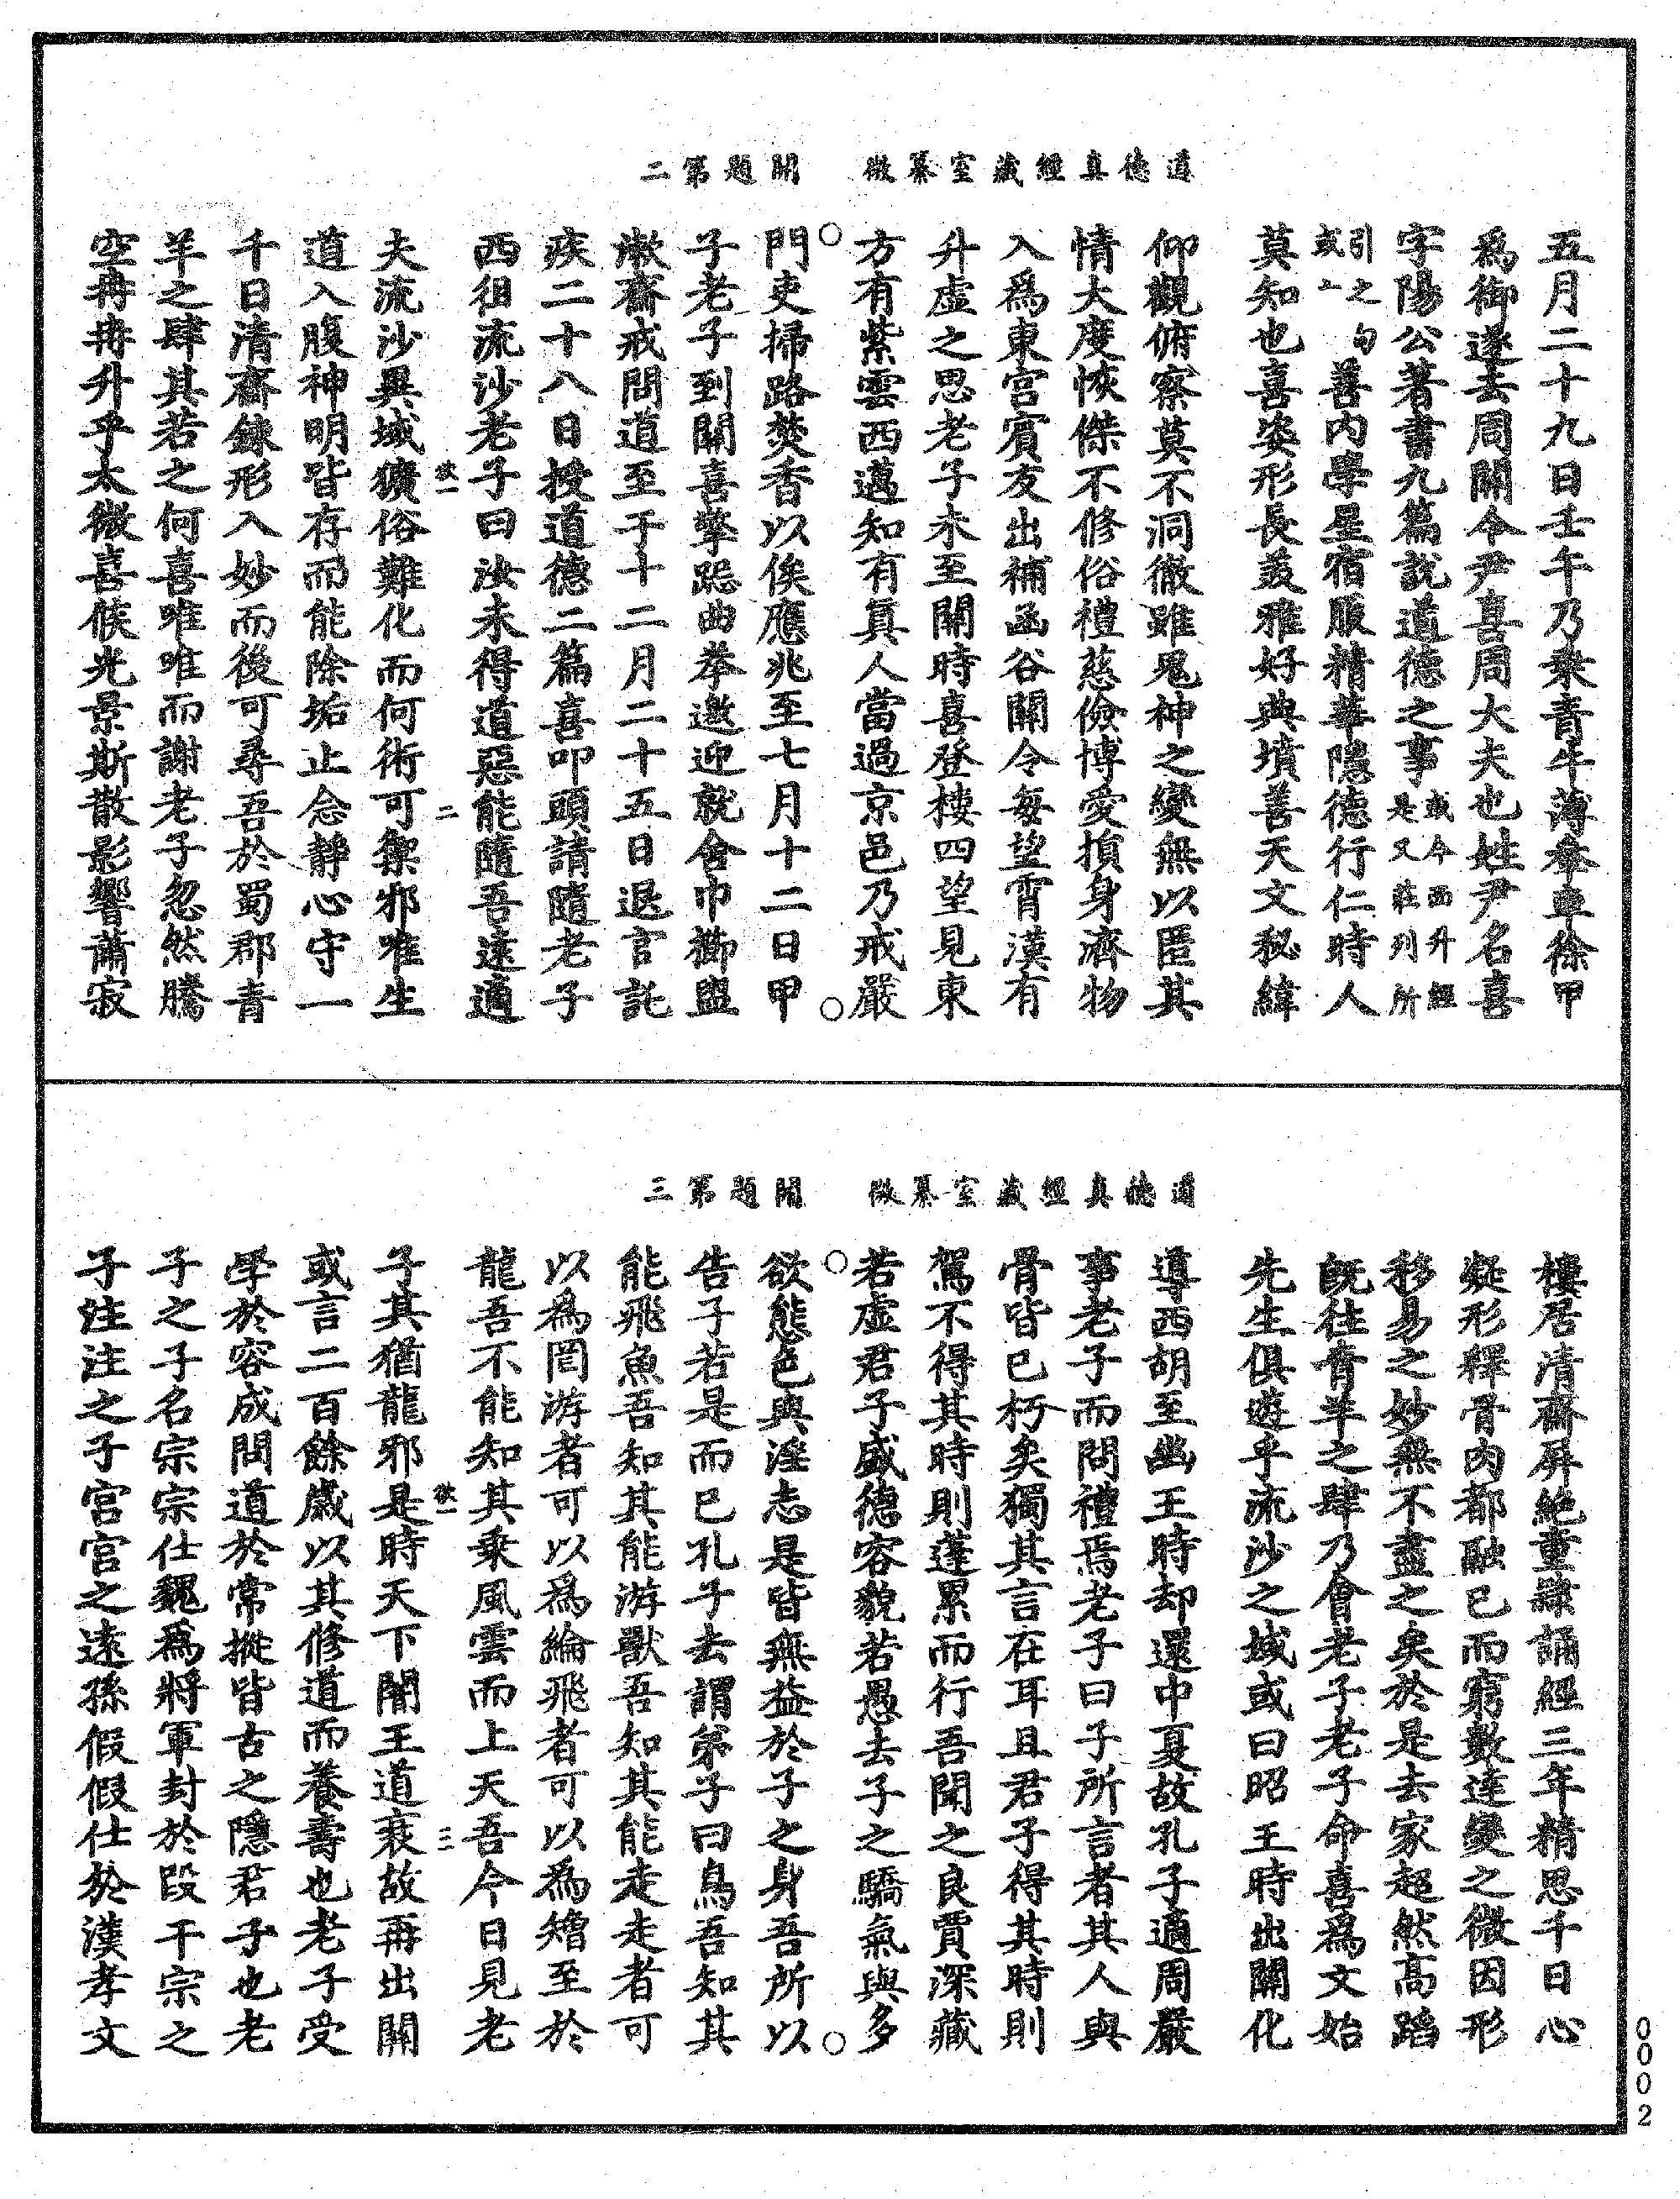 道德真經藏室纂微　開題第二
五月二十九日壬午乃乘青牛薄軬車徐甲
爲御遂去周關令尹喜周大夫也姓尹名喜
字陽公著書九篇說道德之事或今西升經是又莊列所
引之句或上善內學星宿服精華隱德行仁時人
莫知也喜姿形長美雅好典墳善天文秘緯
仰觀俯察莫不洞徹雖鬼神之變無以匿其
情大度恢傑不修俗禮慈儉博愛損身濟物
入爲東宮賓友出補函谷關令每望霄漢有
升虛之思老子未至關時喜登樓四望見東
方有紫雲西邁知有真人當過京邑乃戒嚴
門吏掃路焚香以俟應兆至七月十二日甲
子老子到關喜擎跽曲拳邀迎就舍巾櫛盥
漱齋戒問道至于十二月二十五日退言託
疾二十八日授道德二篇喜叩頭請隨老子
西徂流沙老子曰汝未得道惡能隨吾遠適
欲一　二
夫流沙異域獷俗難化而何術可禦邪唯生
道入腹神明皆存而能除垢止念靜心守一
千日清齋鍊形入妙而後可尋吾於蜀郡青
羊之肆其若之何喜唯唯而謝老子忽然騰
空冉冉升乎太微喜候光景斯散影響蕭寂
道德真經藏室纂微　開題第三
樓居清齋屏絕重肆誦經三年精思千日心
凝形釋骨肉都融已而窮數達變之微因形
移易之妙無不盡之矣於是去家超然高蹈
旣往青羊之肆乃會老子老子命喜爲文始
先生俱遊乎流沙之域或曰昭王時出關化
導西胡至幽王時却還中夏故孔子適周嚴
事老子而問禮焉老子曰子所言者其人與
骨皆已朽矣獨其言在耳且君子得其時則
駕不得其時則蓬累而行吾聞之良賈深藏
若虛君子盛德容貌若愚去子之驕氣與多
欲態色與淫志是皆無益於子之身吾所以
告子若是而已孔子去謂弟子曰鳥吾知其
能飛魚吾知其能游獸吾知其能走走者可
以爲罔游者可以爲綸飛者可以爲矰至於
龍吾不能知其乘風雲而上天吾今日見老
欲一　三
子其猶龍邪是時天下闇王道衰故再出關
或言二百餘歲以其修道而養壽也老子受
學於容成問道於常摐皆古之隱君子也老
子之子名宗宗仕魏爲將軍封於段干宗之
子注注之子宮宮之遠孫假假仕於漢孝文
0002